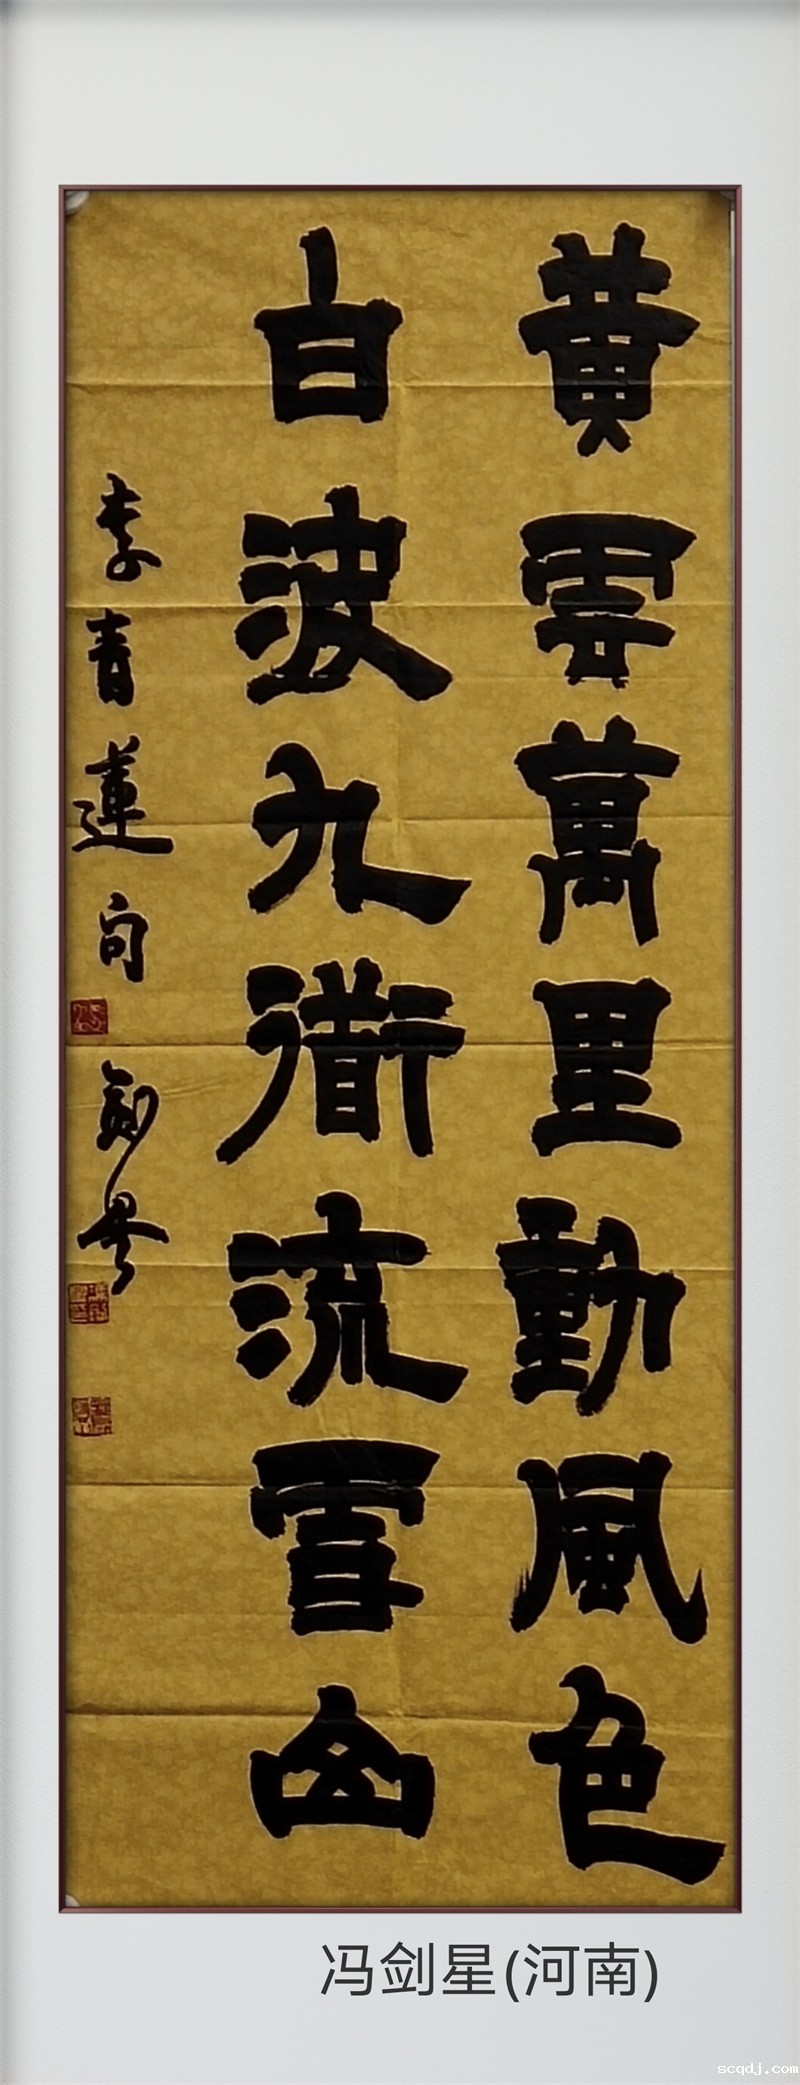 黃雲萬里動風色
白波九衜流雪山
李青蓮句
劍星
冯剑星(河南)
scqdj.com